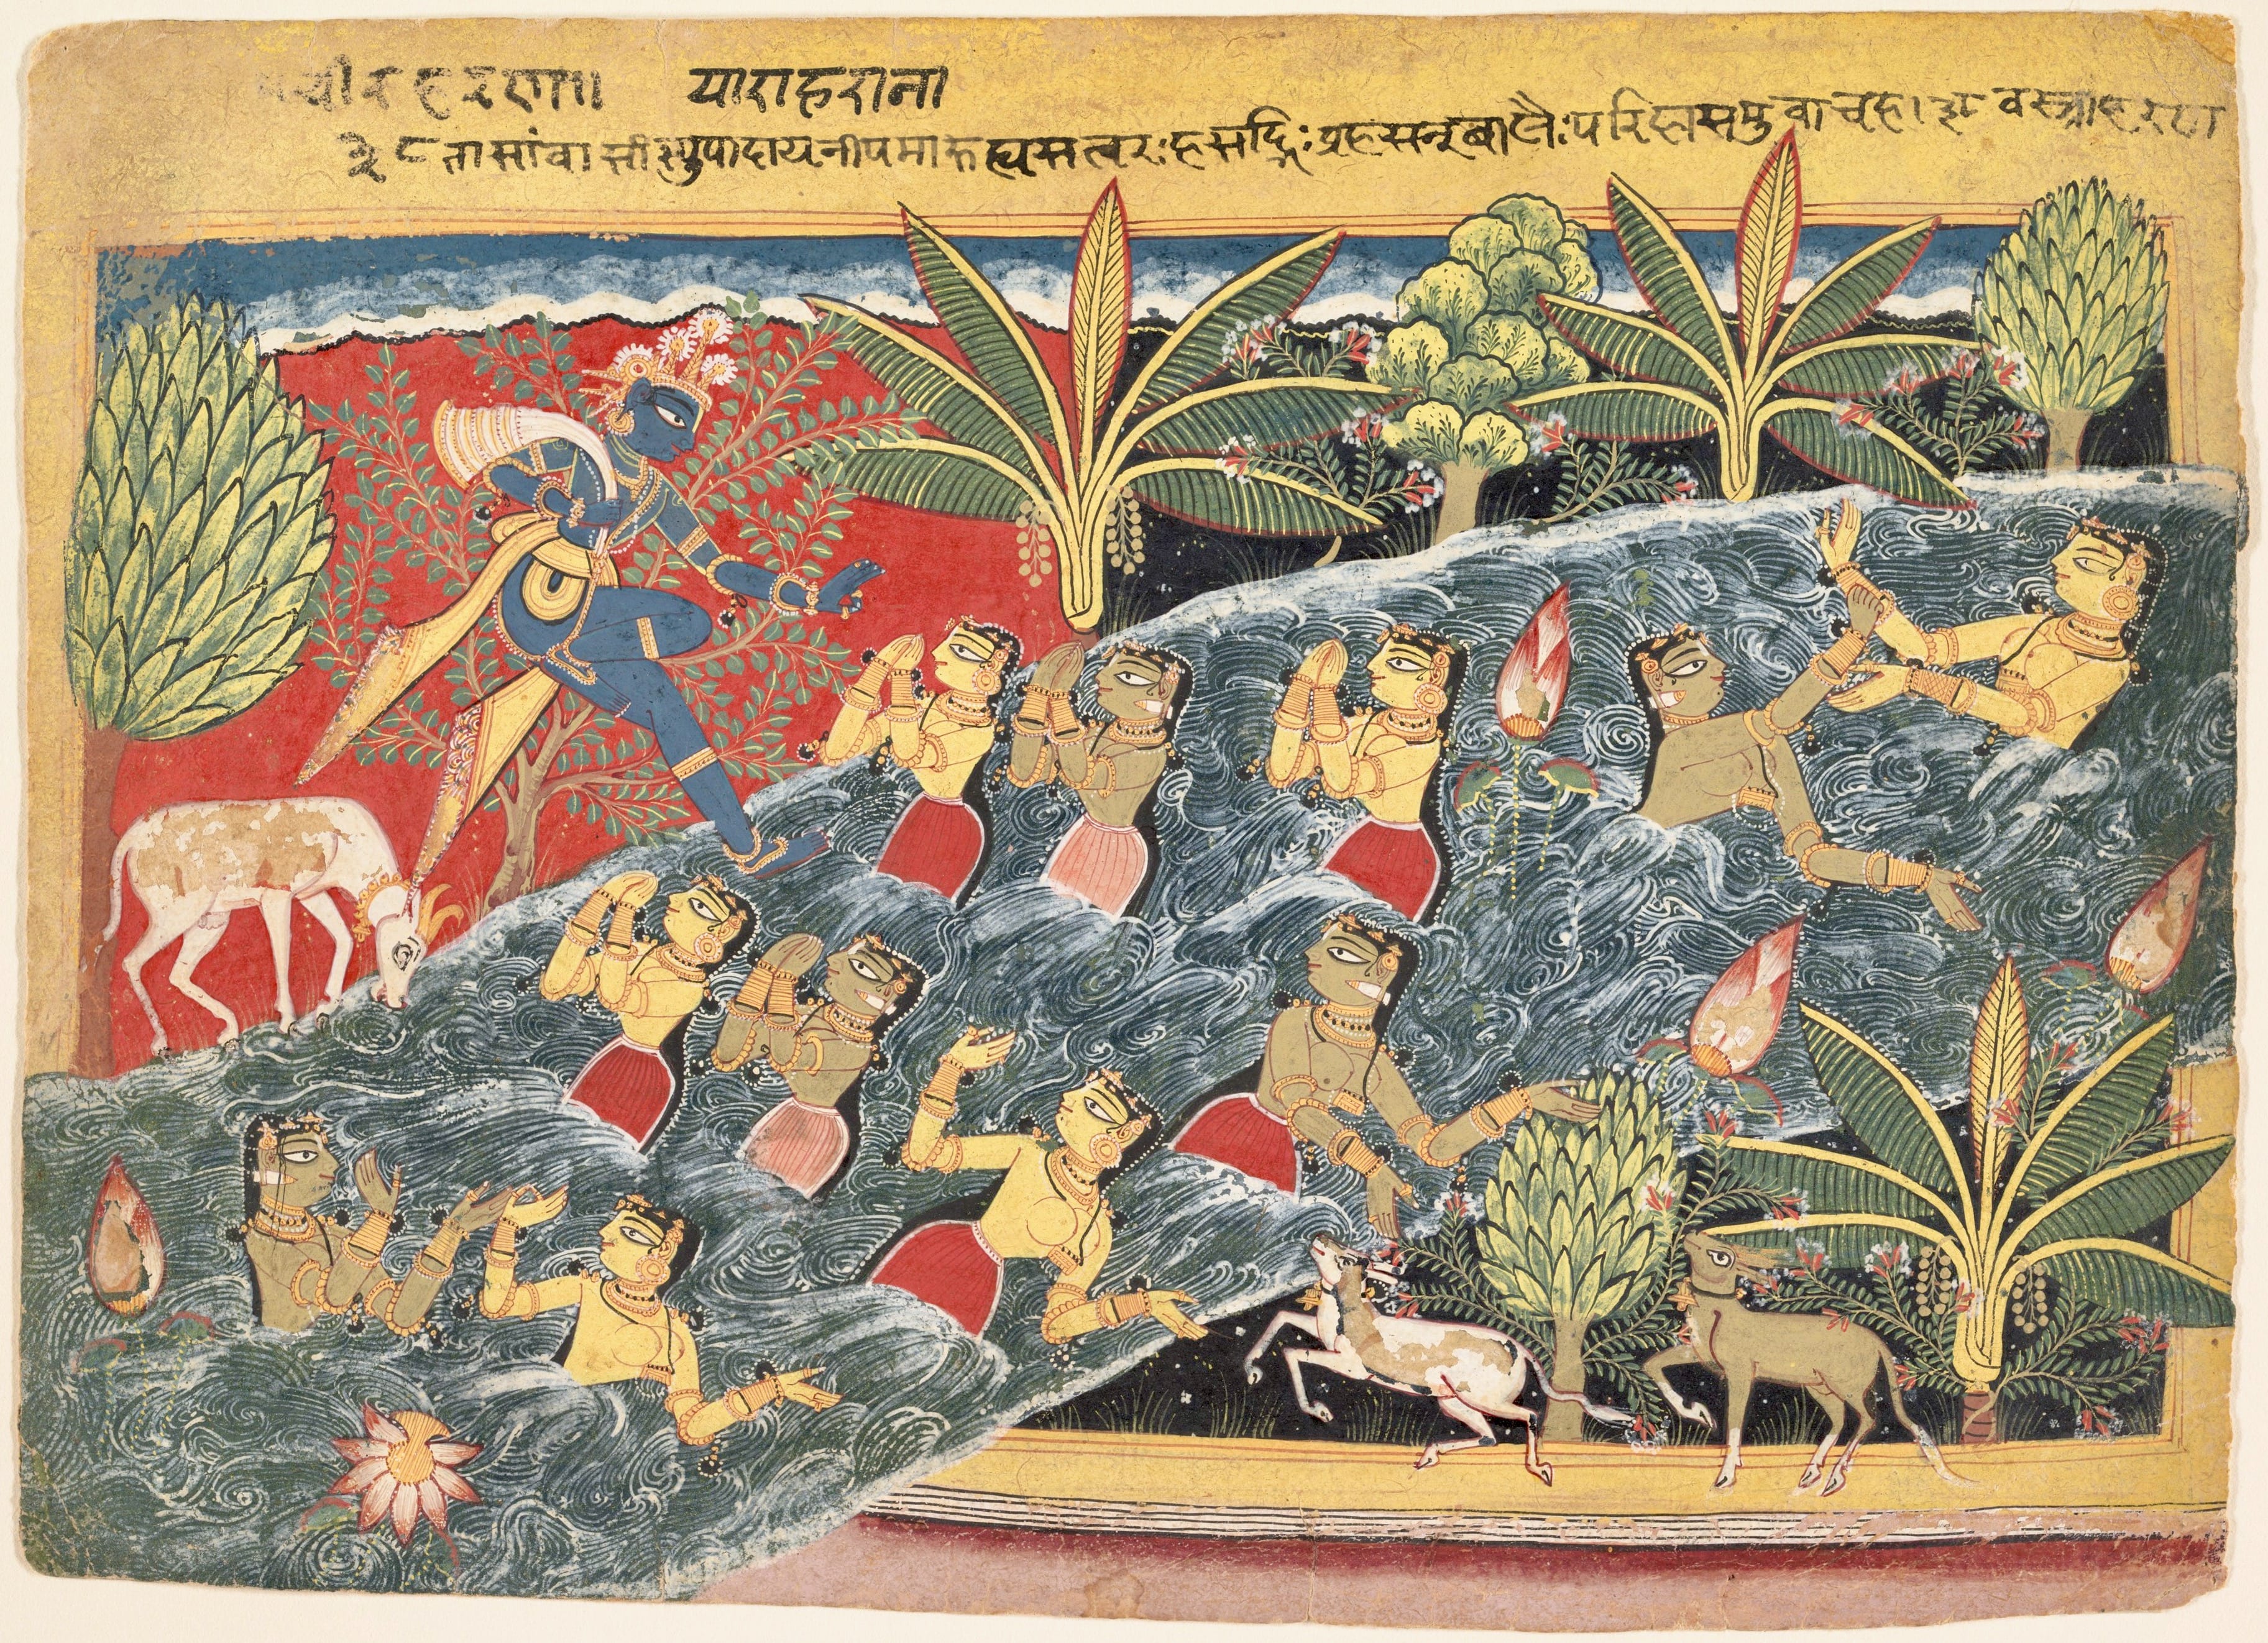 चीरहरण॥ याराहराना
३८ तासांवासांस्युपादायनीपमारुह्यसत्वरः हसद्भिः प्रहसन्बालैः परिहासमुवाचह। ३८ वस्त्राहरण